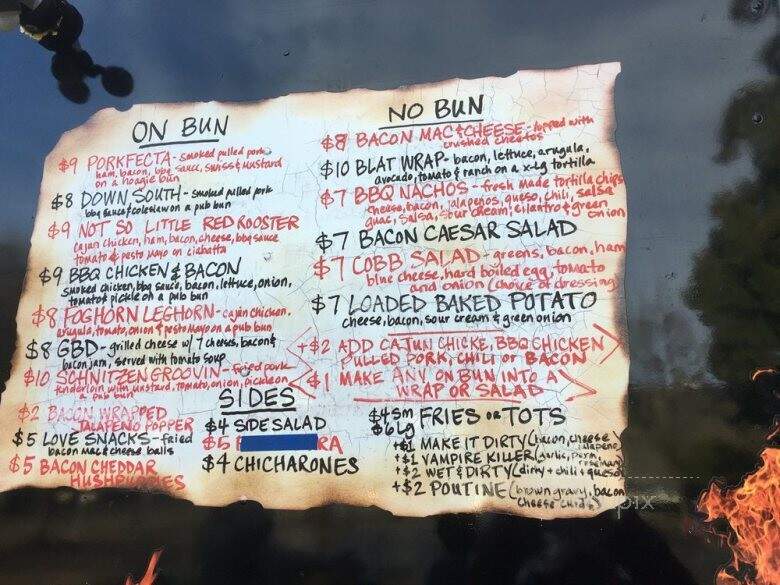 ON BUN
$9 PORKFECTA - smoked pulled pork
ham, bacon, bbq sauce, swiss & mustard
on a hoagie bun
$8 DOWN SOUTH - smoked pulled pork
bbq sauce & coleslaw on a pub bun
$9 NOT SO LITTLE RED ROOSTER
cajun chicken, ham, bacon, cheese, bbq sauce
tomato & pesto mayo on ciabatta
$9 BBQ CHICKEN & BACON
smoked chicken, bbq sauce, bacon, lettuce, onion,
tomato & pickle on a pub bun
$8 FOGHORN LEGHORN - cajun chicken,
arugula, tomato, onion & pesto mayo on a pub bun
$8 GBD - grilled cheese w/ 7 cheeses, bacon &
bacon jam, served with tomato soup
$10 SCHNITZEN GROOVIN - fried pork
tenderloin with mustard, tomato, onion, pickle on
a pub bun
$2 BACON WRAPPED
JALAPEÑO POPPER
$5 LOVE SNACKS - fried
bacon mac & cheese balls
$5 BACON CHEDDAR
HUSHPUPPIES
SIDES
$4 SIDE SALAD
$5 RA
$4 CHICHARONES
NO BUN
$8 BACON MAC & CHEESE - topped with
crushed cheetos
$10 BLAT WRAP - bacon, lettuce, arugula,
avocado, tomato & ranch on a x-Lg tortilla
$7 BBQ NACHOS - fresh made tortilla chips
cheese, bacon, jalapeños, queso, chili, salsa
guac, salsa, sour cream, cilantro & green
onion
$7 BACON CAESAR SALAD
$7 COBB SALAD - greens, bacon, ham
blue cheese, hard boiled egg, tomato
and onion (choice of dressing)
$7 LOADED BAKED POTATO
cheese, bacon, sour cream & green onion
+$2 ADD CAJUN CHICKE, BBQ CHICKEN
PULLED PORK, CHILI or BACON
$1 MAKE ANY ON BUN INTO A
WRAP OR SALAD
$4 sm FRIES or TOTS
$6 Lg
+$1 MAKE IT DIRTY (bacon, cheese
jalapeño)
+$1 VAMPIRE KILLER (garlic, parm,
rosemary)
+$2 WET & DIRTY (dirty + chili + queso)
+$2 POUTINE (brown gravy, bacon
cheese curds)
pix